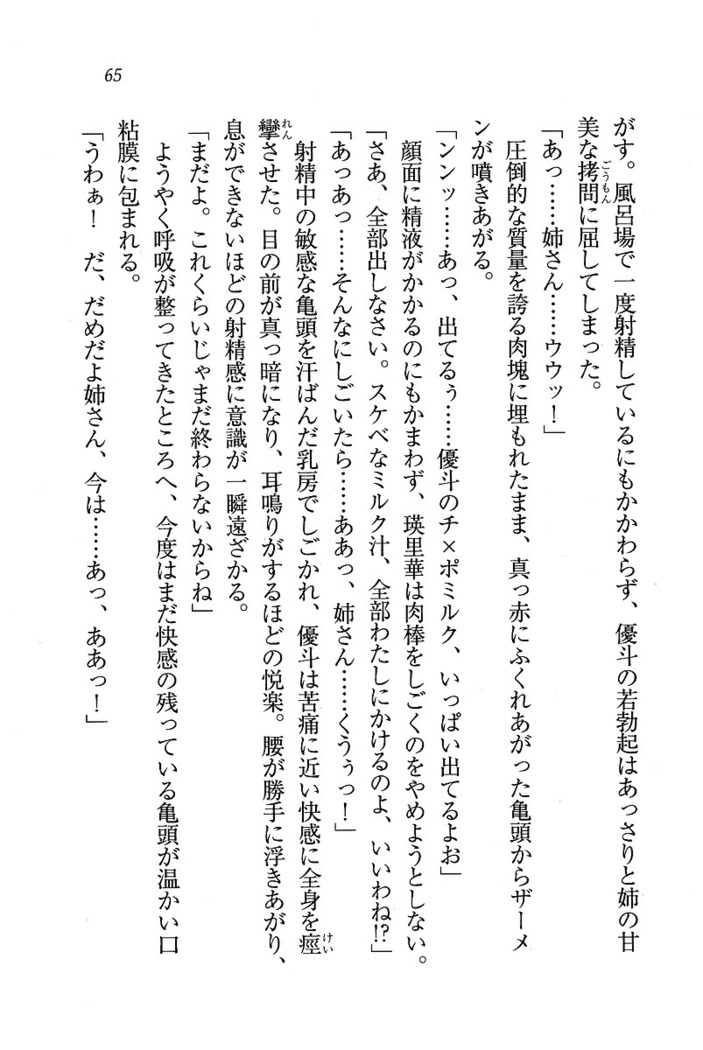 65
がす。風呂場で一度射精しているにもかかわらず、優斗の若勃起はあっさりと姉の甘
美な拷問に屈してしまった。
「あっ……姉さん……ウウッ！」
圧倒的な質量を誇る肉塊に埋もれたまま、真っ赤にふくれあがった亀頭からザーメ
ンが噴きあがる。
「ンンッ……あっ、出てるぅ……優斗のチ×ポミルク、いっぱい出てるよお」
顔面に精液がかかるのにもかまわず、瑛里華は肉棒をしごくのをやめようとしない。
「さあ、全部出しなさい。スケベなミルク汁、全部わたしにかけるのよ、いいわね!?」
「あっあっ……そんなにしごいたら……ああっ、姉さん……くうぅっ！」
射精中の敏感な亀頭を汗ばんだ乳房でしごかれ、優斗は苦痛に近い快感に全身を痙
攣させた。目の前が真っ暗になり、耳鳴りがするほどの悦楽。腰が勝手に浮きあがり、
息ができないほどの射精感に意識が一瞬遠ざかる。
「まだよ。これくらいじゃまだ終わらないからね」
ようやく呼吸が整ってきたところへ、今度はまだ快感の残っている亀頭が温かい口
粘膜に包まれる。
「うわぁ！　だ、だめだよ姉さん、今は……あっ、ああっ！」